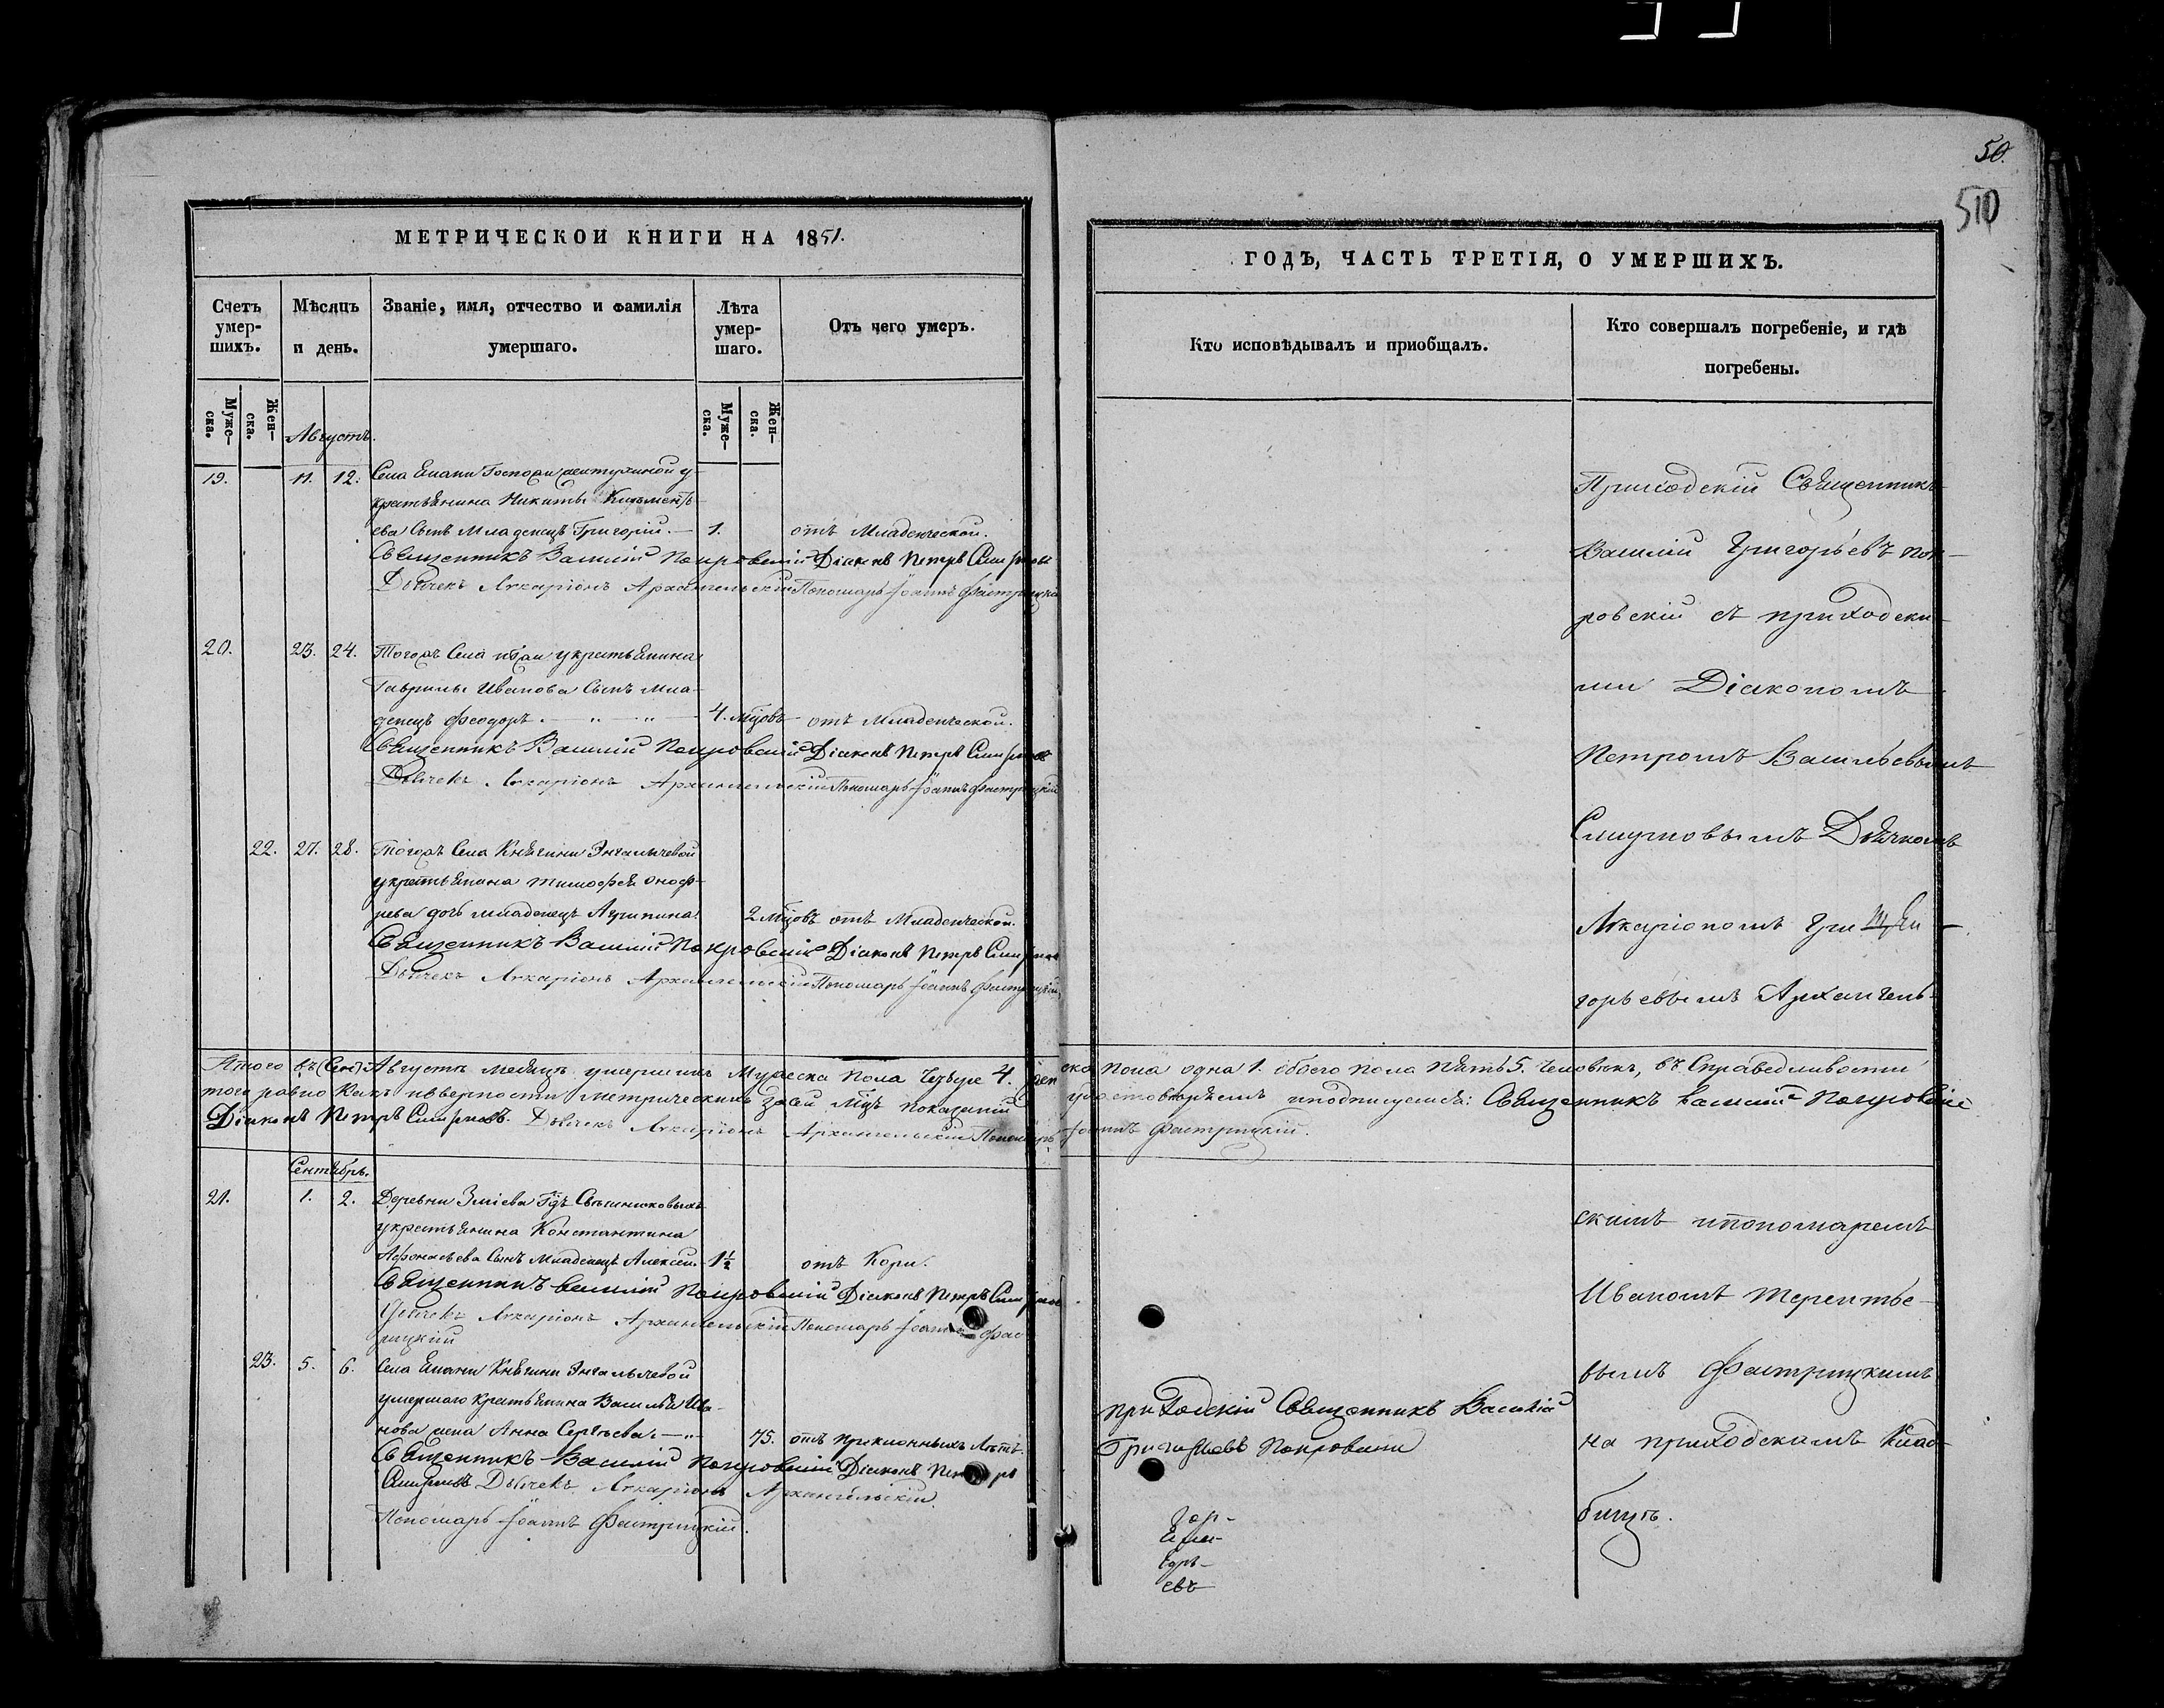 50.
510
МЕТРИЧЕСКОЙ КНИГИ НА 1851.
Счетъ умер-
шихъ.
Мѣсяцъ
и день.
Званіе, имя, отчество и фамилія
умершаго.
Лѣта
умер-
шаго.
Отъ чего умеръ.
Муже-
ска.
Жен-
ска.
Муже-
ска.
Жен-
ска.
Августъ.
19. 11. 12. Села Епани Госпожи
крестьянина Никиты
ева Сынъ младенецъ Григорій. — 1. отъ Младенческой.
Священникъ Василій Покровскій Діаконъ Петръ Смирновъ
Дьячекъ Иларіонъ Архангельскій Пономарь Іоаннъ Фастрицкій
20. 23. 24. Тогожъ Села крестьянина
Гаврилы Иванова Сынъ мла-
денецъ Феодоръ. — „ — „ — 4. мцовъ отъ Младенческой.
Священникъ Василій Покровскій Діаконъ Петръ Смирновъ
Дьячекъ Иларіонъ Архангельскій Пономарь Іоаннъ Фастрицкій
22. 27. 28. Тогожъ Села Княгини Энгалычевой
у крестьянина Тимофея Оноф-
рева дочь младенецъ Агрипина. 2 мцовъ отъ Младенческой.
Священникъ Василій Покровскій Діаконъ Петръ Смирновъ
Дьячекъ Иларіонъ Архангельскій Пономарь Іоаннъ Фастрицкій
Итого въ Августѣ месяцѣ умершихъ Мужеска пола четыре 4. Жен
того равно какъ и верности метрическихъ за сей мцъ показаній
Діаконъ Петръ Смирновъ. Дьячекъ Иларіонъ Архангельскій Пономарь
Сентябрь.
21. 1. 2. Деревни Зміева Гдъ
у крестьянина Константина
Афонасьева Сынъ Младенецъ Алексей. 1½ отъ Кори.
Священникъ Василій Покровскій Діаконъ Петръ Смирновъ
Дьячекъ Иларіонъ Архангельскій Пономарь Іоаннъ Фаст
рицкій
23. 5. 6. Села Епани Княгини Энгалычевой
умершаго крестьянина Василья Ива-
нова жена Анна Сергѣева. — „ — 75. отъ преклонныхъ лѣтъ.
Священникъ Василій Покровскій Діаконъ Петръ
Смирновъ Дьячекъ Иларіонъ Архангельскій.
Пономарь Іоаннъ Фастрицкій.
ГОДЪ, ЧАСТЬ ТРЕТІЯ, О УМЕРШИХЪ.
Кто исповѣдывалъ и пріобщалъ.
Кто совершалъ погребеніе, и гдѣ
погребены.
Приходскій Священникъ
Василій Григорьевъ Пок-
ровскій съ приходски-
ми Діакономъ
Петромъ Васильевымъ
Смирновымъ Дьячкомъ
Иларіономъ Гри
горьевымъ Архангель-
ска пола одна 1. обоего пола пять 5. человѣкъ, въ Справедливости
удостовѣряемъ и подписуемся: Священникъ Василій Покровскій
Іоаннъ Фастрицкій.
скимъ и пономаремъ
Иваномъ Терентье-
вымъ Фастрицкимъ
на приходскомъ клад-
бищѣ.
приходскій Священникъ Василій
Григорьевъ Покровскій
евъ